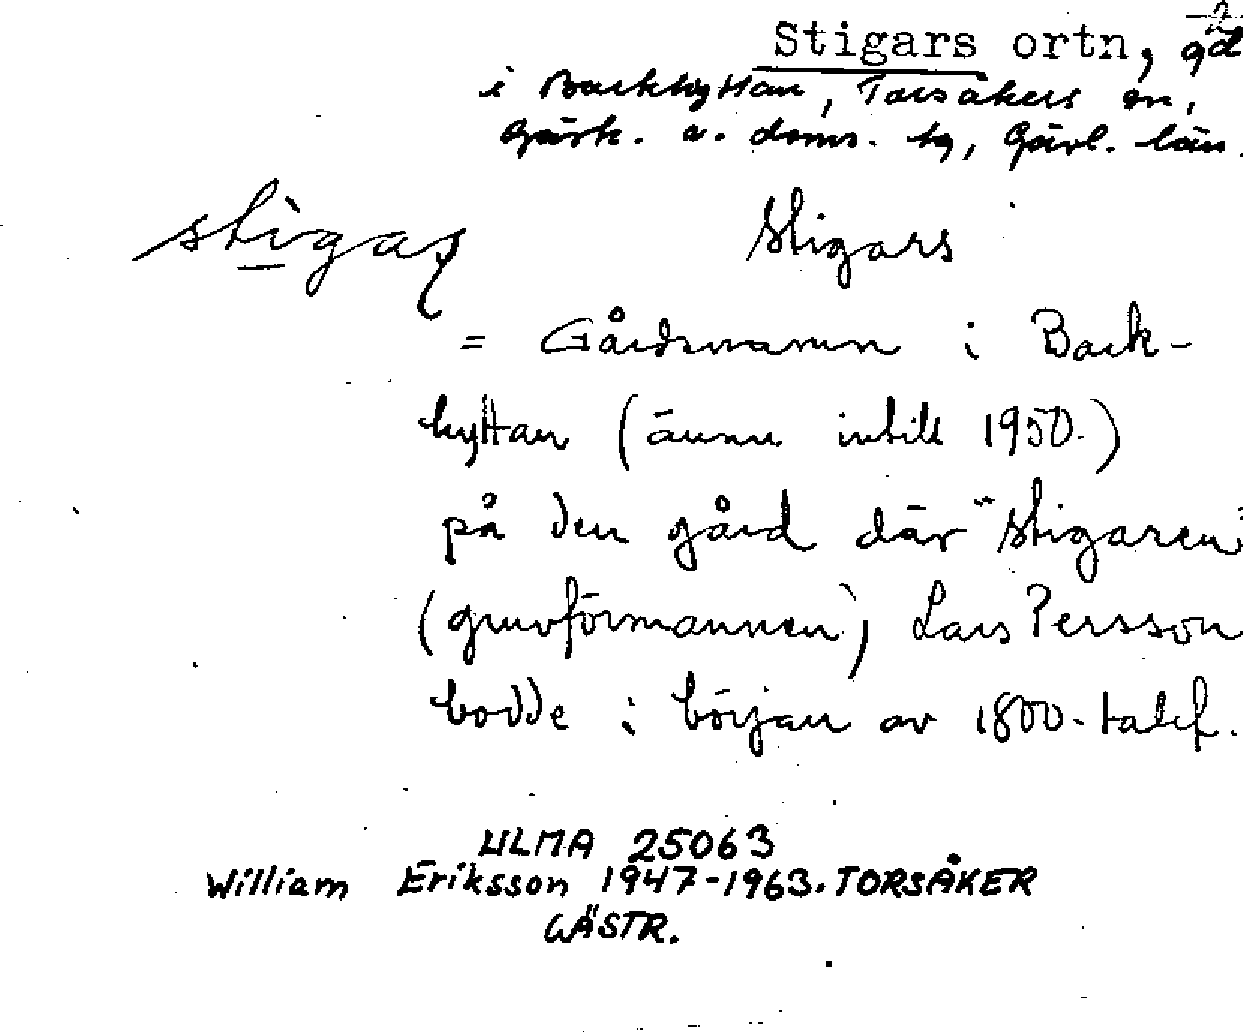 Stigars ortn, gd
i Backhyttan, Torsåkers sn,
Gästr. ö. doms. tg, Gävl. län.
stìgaṣ Stigars
= Gårdsnamn i Back-
hyttan (ännu intill 1950.)
på den gård där "stigaren"
(gruvförmannen) Lars Persson
bodde i början av 1800-talet.
ULMA 25063
William Eriksson 1947-1963. TORSÅKER
GÄSTR.